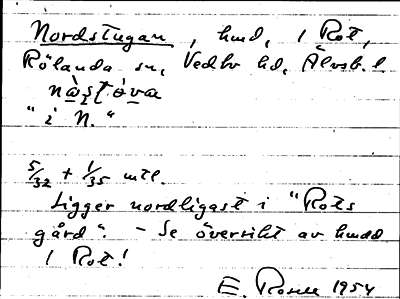 Nordstugan, hmd, 1 Rot,
Rölanda sn, Vedbo hd, Älvsb. l
nàʂt́ơva
"i N."
5/32 + 1/35 mtl.
Ligger nordligast i "Rots
gård". - Se översikt av hmdd
1 Rot!
E. 1954